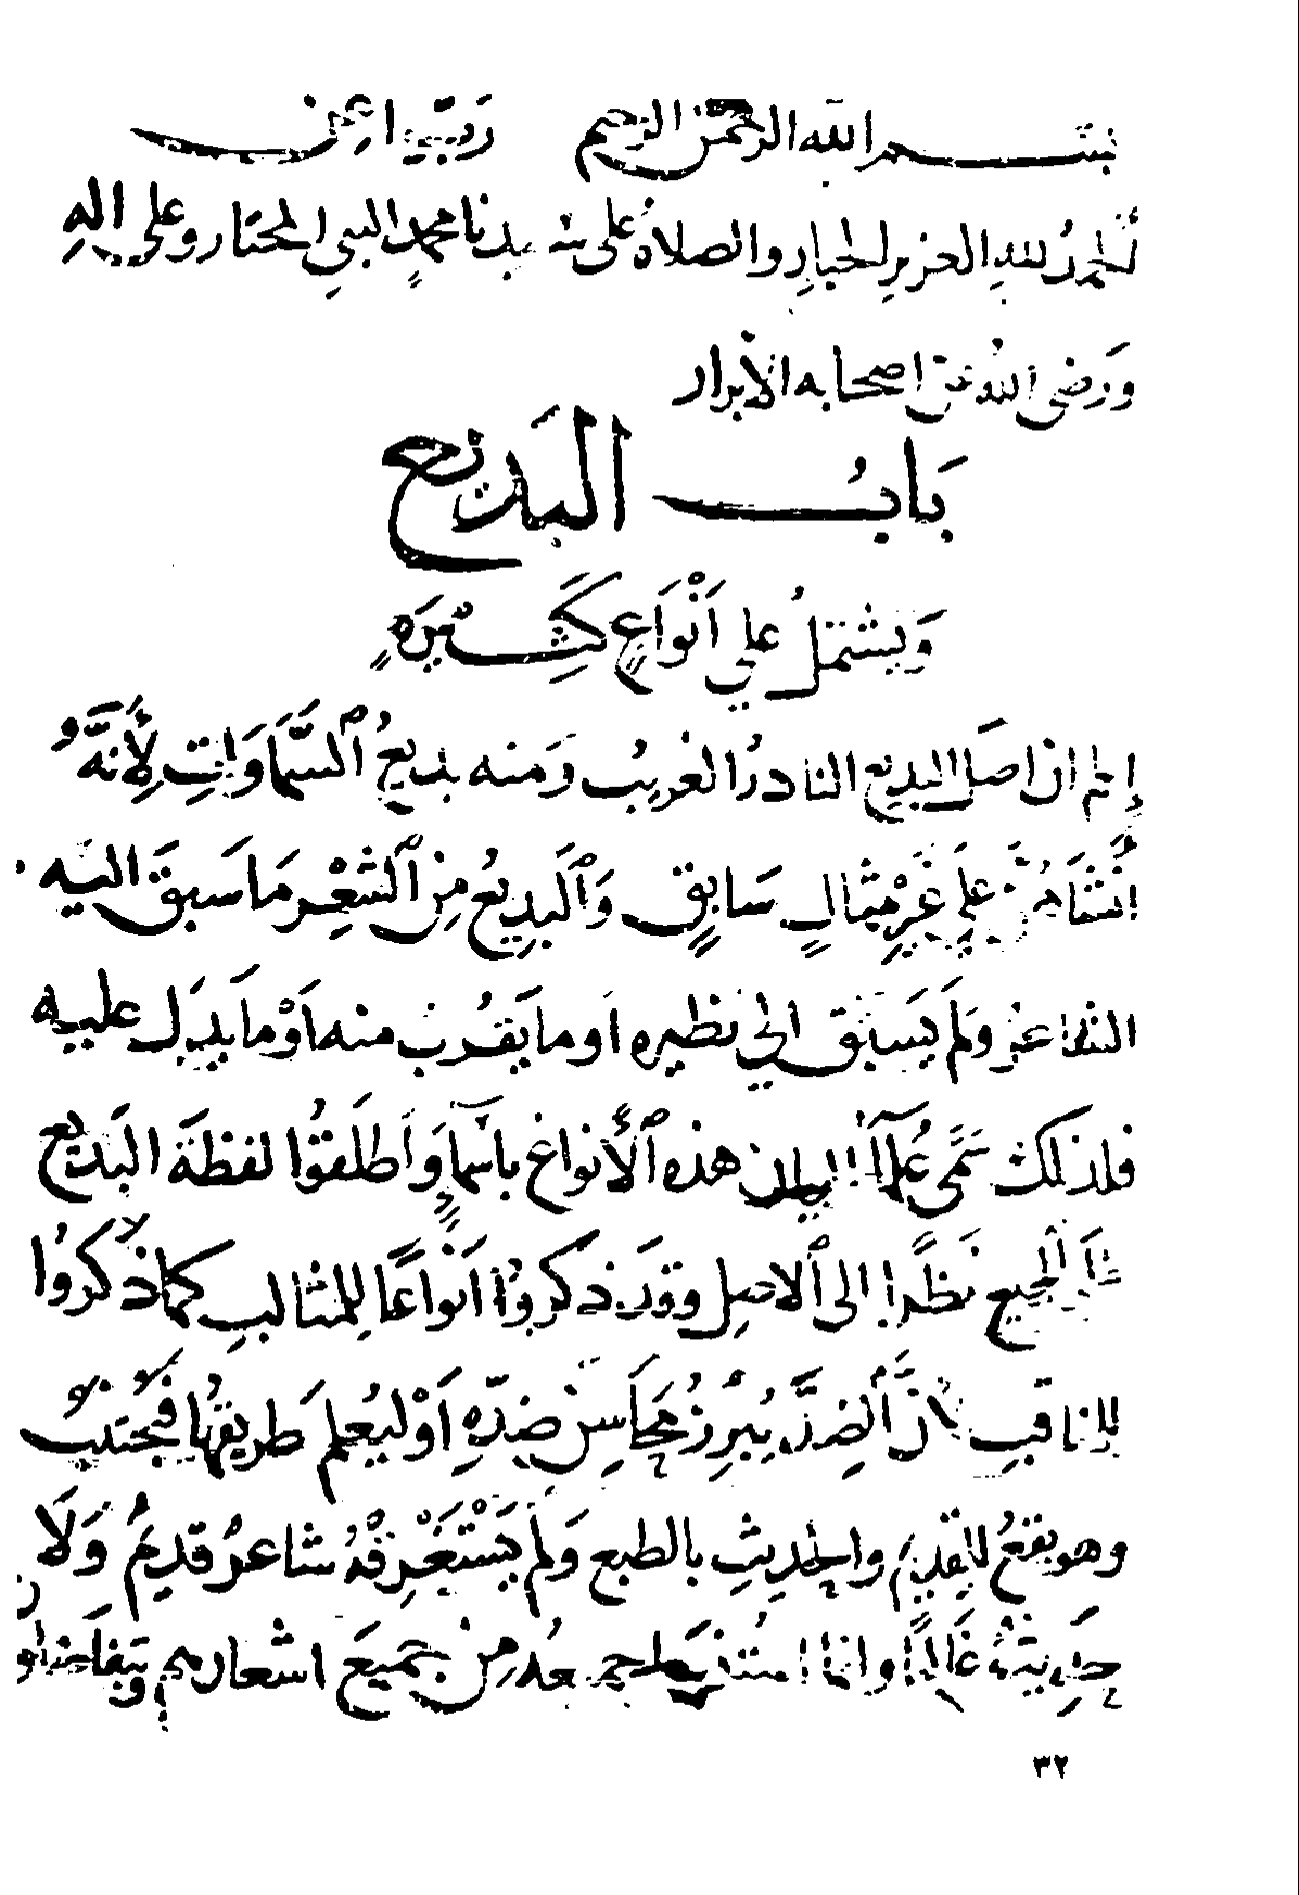 بسم الله الرحمن الرحيم رَبِّ اعِن
الحمدُ لله العزيز الجبارِ والصلاةُ على سيدنا محمدٍ النبي المختار وعلى الهِ
وَرَضى اللهُ عن اصحابه الأبرار
بَابُ البَديع
وَيشتملُ علي اَنْوَاعٍ كَثِيْرَةٍ
اِعلم ان اصلَ البديع النادرُ الغريبُ وَمنه بديعُ ٱلسَّمَاوَاتِ لِأَنَّهُ
انشَأهنَّ علَي غَيْرِ مِثالٍ سَابِقٍ وَٱلَبدِيعُ مِنَ ٱلشعْرِ مَا سَبقَ اليَه
الشاعرُ وَلَم يسَبق الي نظيره او ما يَقرُب منه اَوْ ما يدَل عليه
فلذلك سَمَّى عُلمآُ البيان هذه ٱلأنواعَ باسْمآٍ وَاَطلَقوُا لفظةَ البَديع
عَلَى الجميعِ نظَرًا إلى ٱلاصِل وقدَ ذكروُا اَنْواعًا لِلمثالبِ كمَا ذَكروُا
للمناقبِ لأنَّ ٱلضِدَّ يُبْرِزُ مَحَاسِنَ ضِدّهِ اَوْ ليُعلم طَريقهُا فُيجَتَنبُ
وهو يقعُ للِقديِم والحديثِ بالطبع وَلم يَسْتَغْرِقْهُ شاعرٌ قديمٌ وَلَا
حَدِيثٌ غَالِبًا وانما من جَميعَ اشعارهم ويَتفاضلو
٣٢